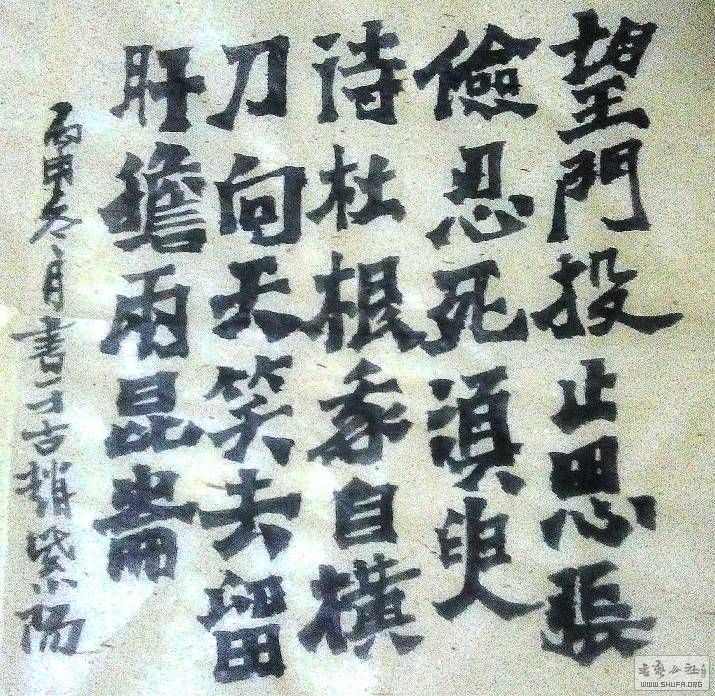 望門投止思張
儉忍死湏臾
待杜根我自橫
刀向天笑去留
肝膽兩昆崙
丙申冬月書于古趙紫陽
书艺公社
WWW.SHUFA.ORG